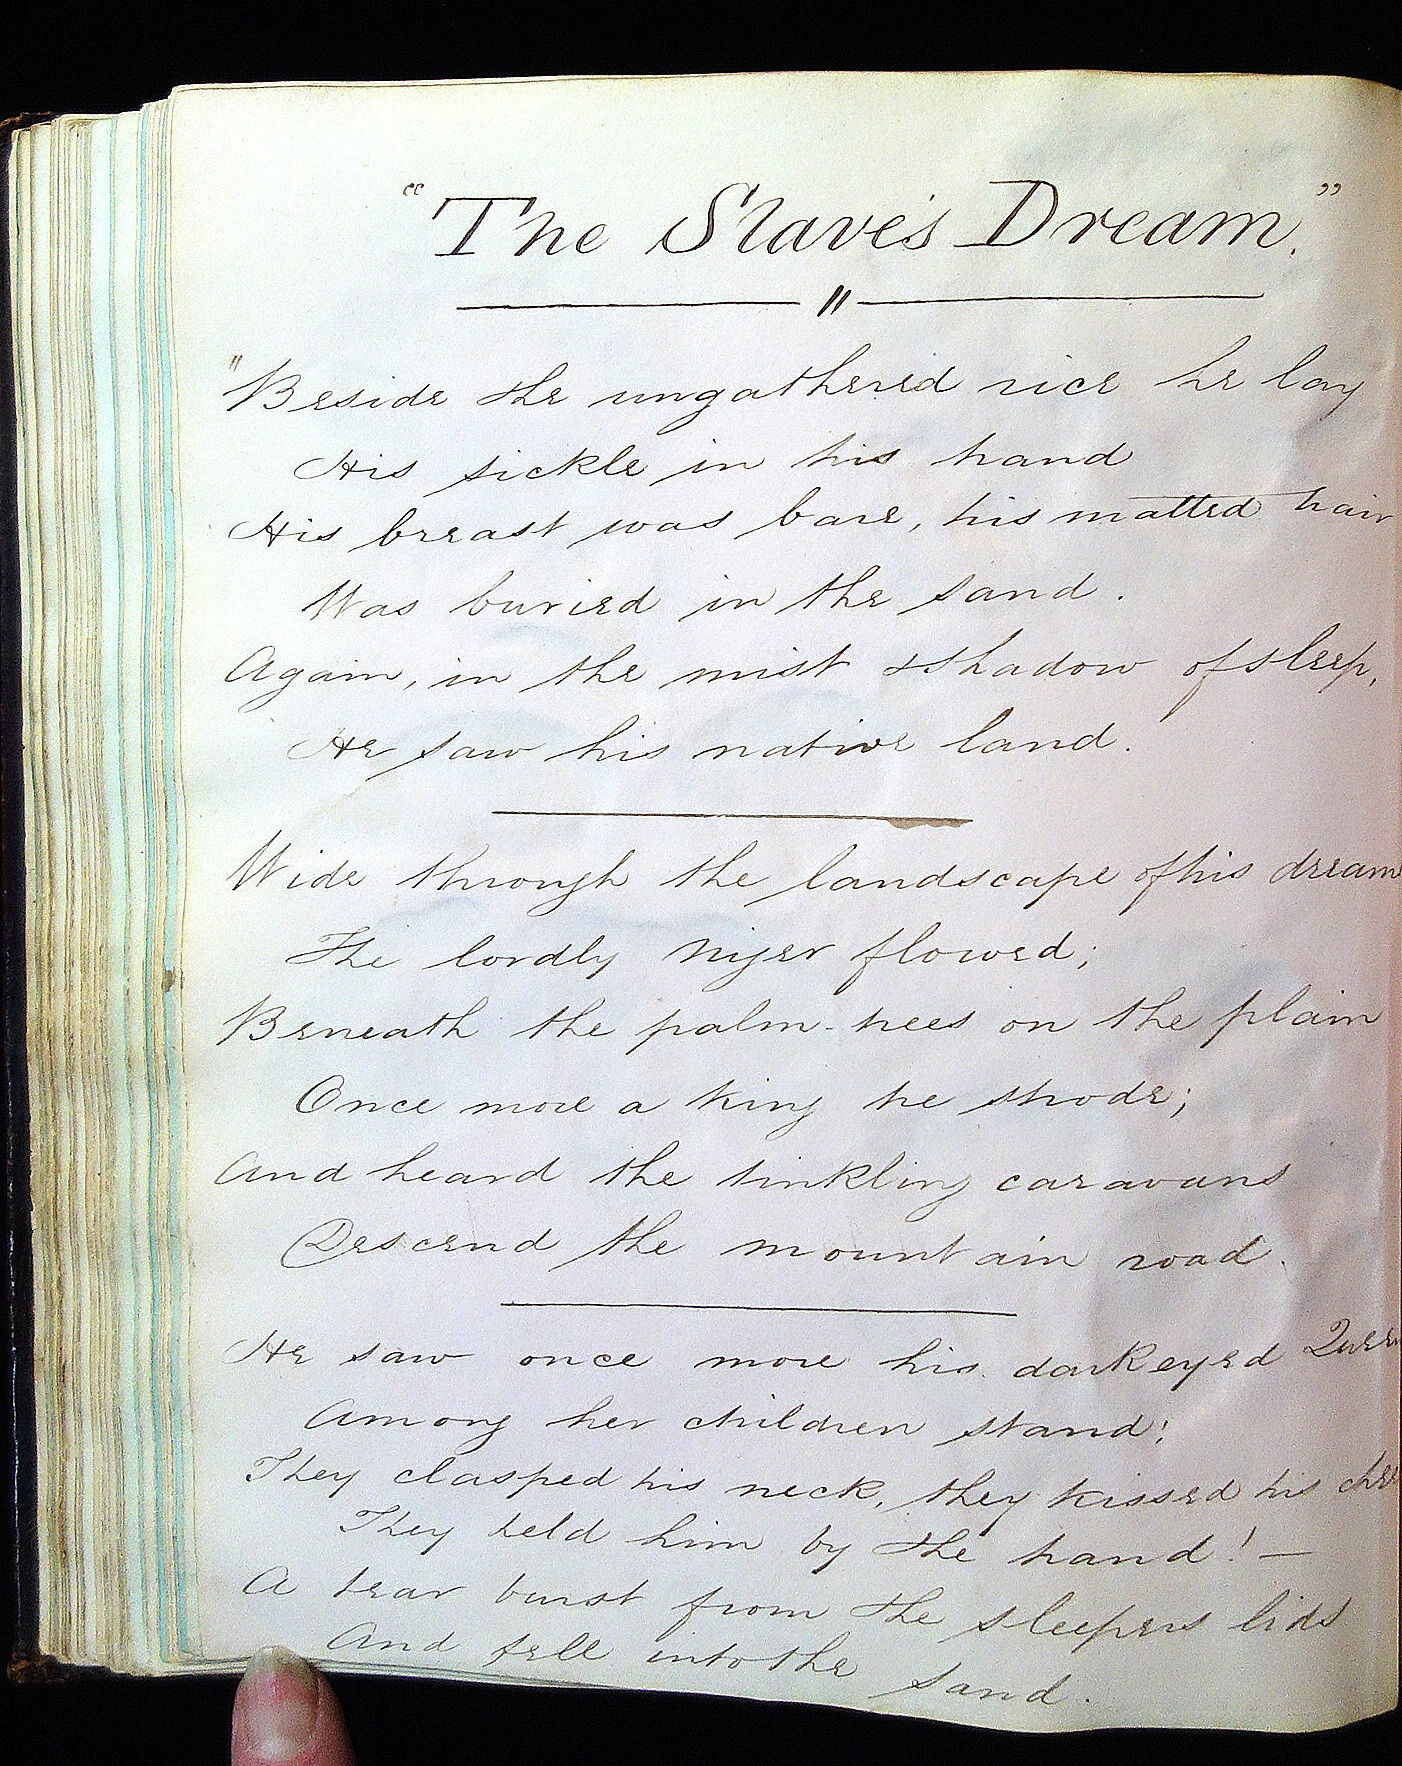 "The Slave's Dream."
"Beside the ungathered rice he lay
His sickle in his hand
His breast was bare, his matted hair
Was buried in the sand.
Again, in the mist & shadow of sleep,
He saw his native land.
Wide through the landscape of his dreams
The lordly Niger flowed;
Beneath the palm-trees on the plain
Once more a king he strode;
And heard the tinkling caravans
Descend the mountain road.
He saw once more his dark eyed Queen
Among her children stand;
They clasped his neck, they kissed his chee
They held him by the hand! —
A tear burst from the sleepers lids
And fell into the sand.